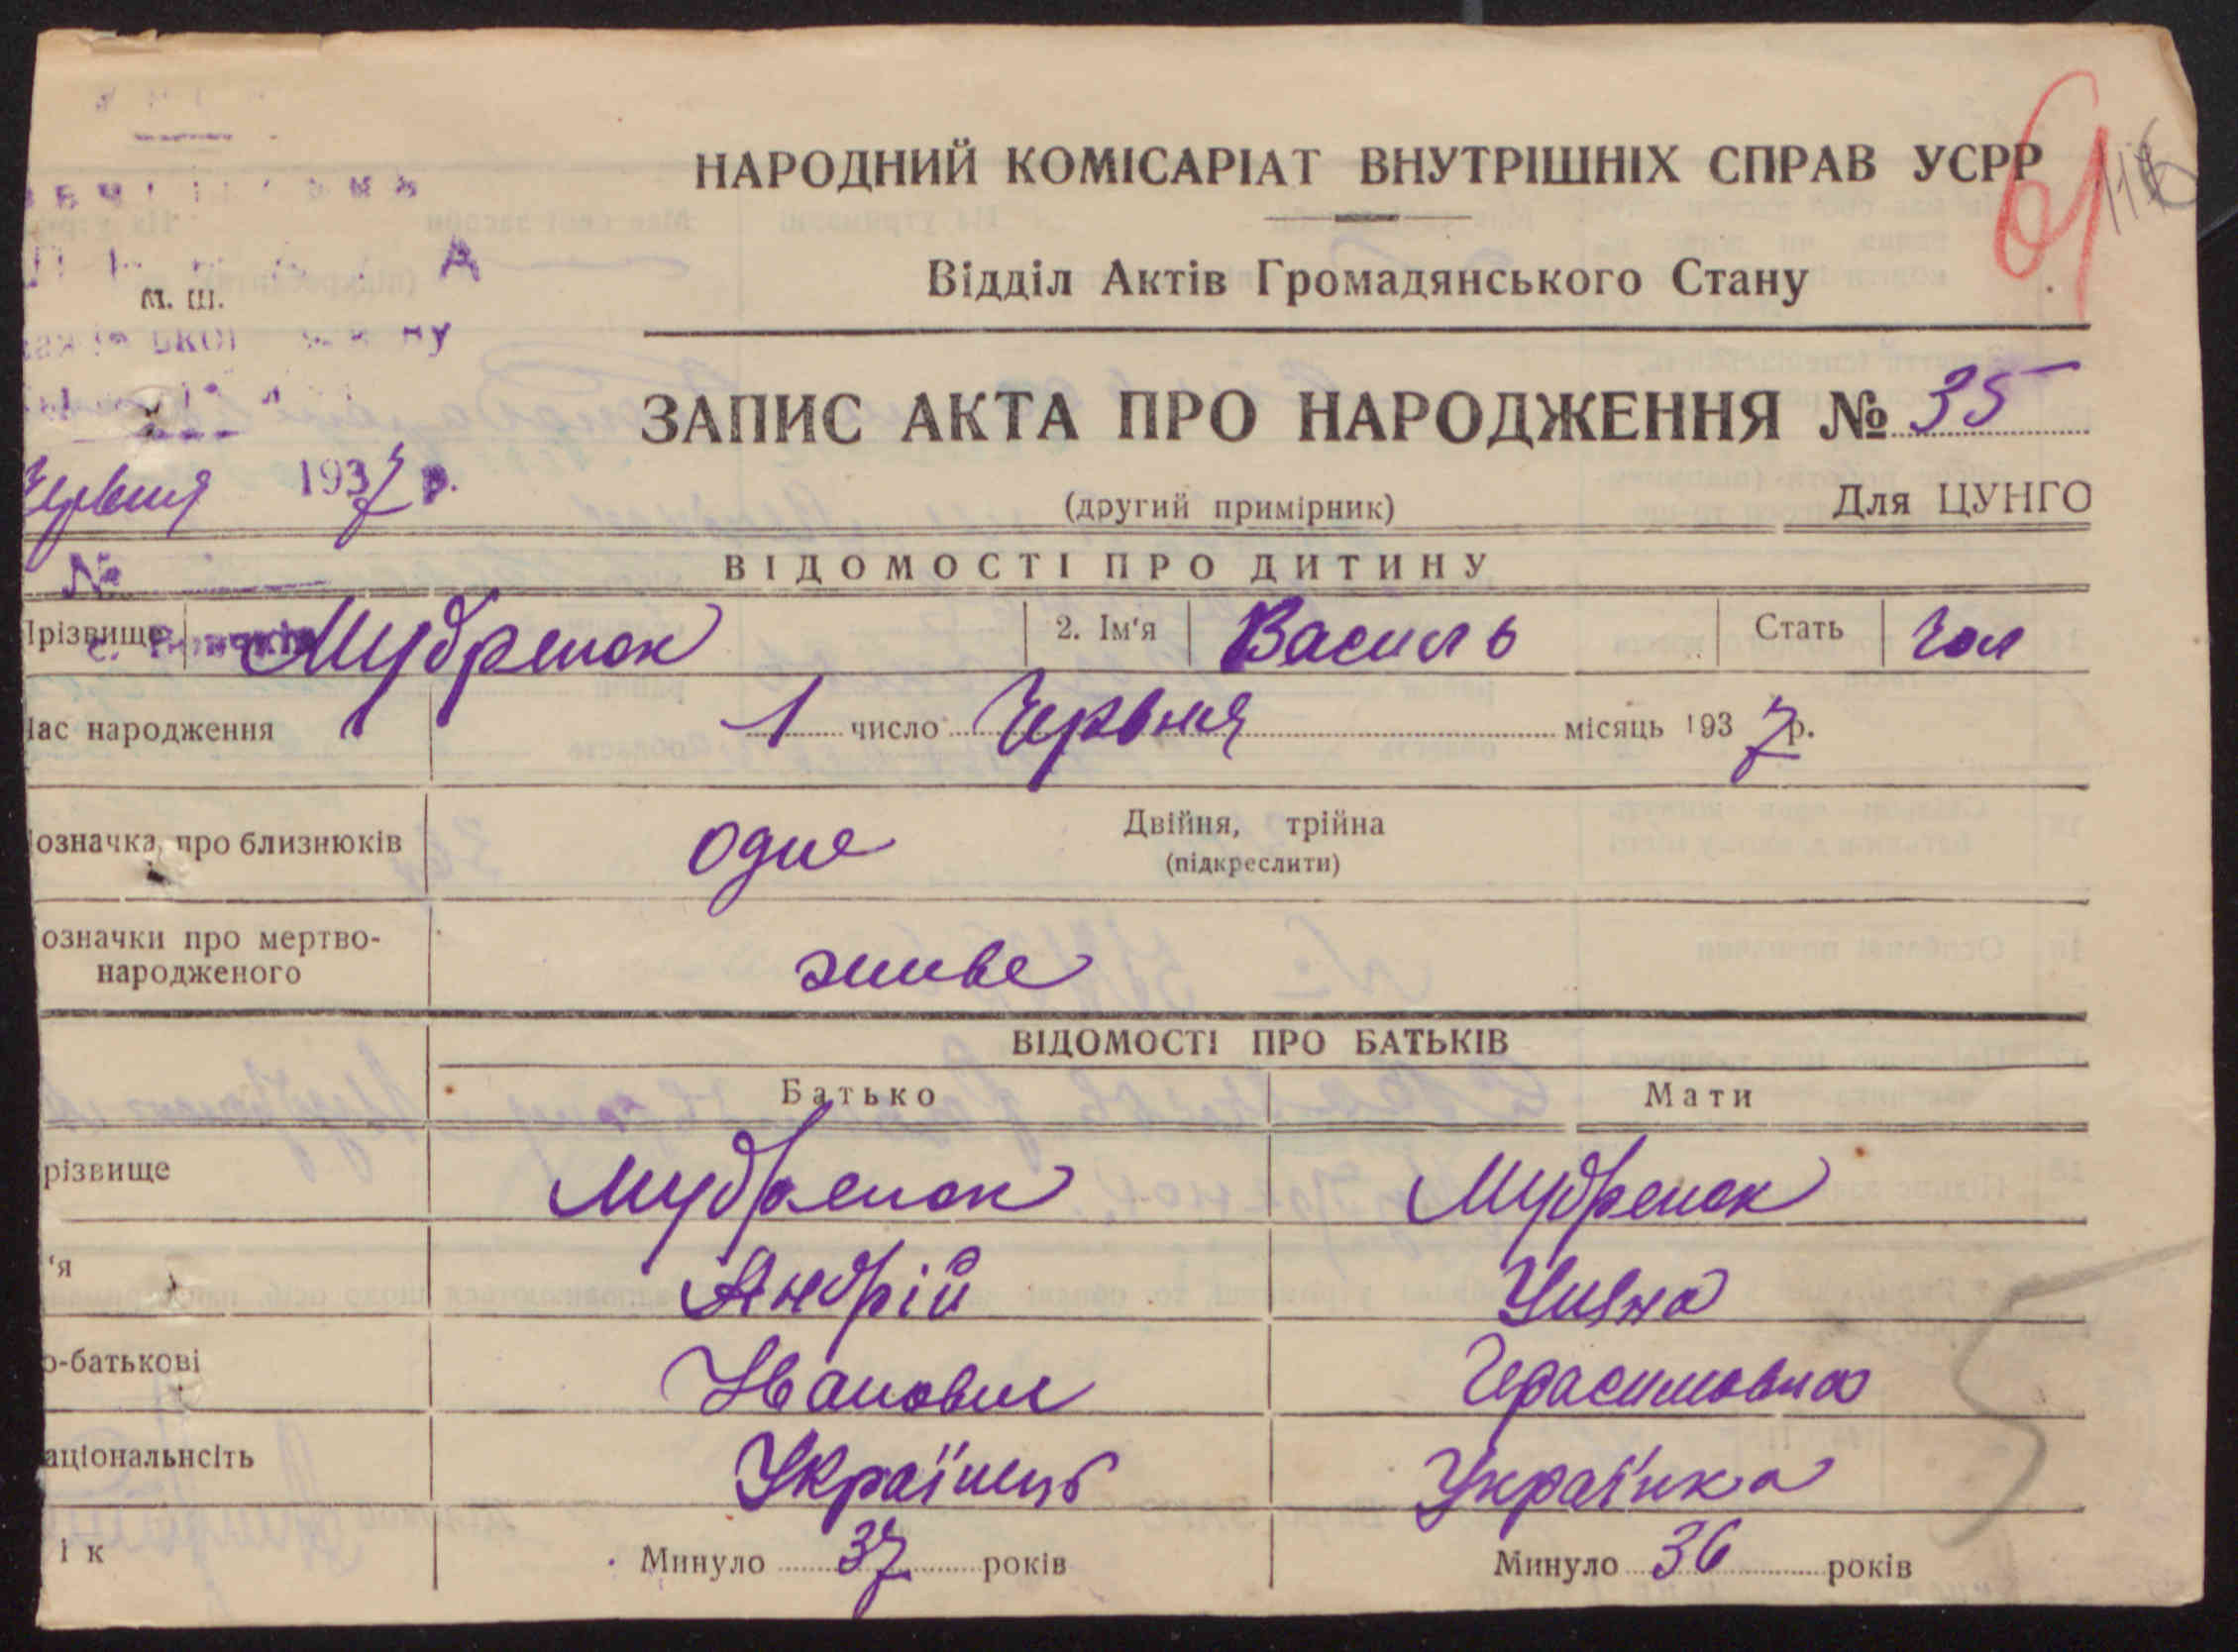 НАРОДНИЙ КОМІСАРІАТ ВНУТРІШНІХ СПРАВ УСРР
61
116
Відділ Актів Громадянського Стану
м. ш.
ЗАПИС АКТА ПРО НАРОДЖЕННЯ № 35
Червня 1937 р.
(другий примірник) Для ЦУНГО
№
ВІДОМОСТІ ПРО ДИТИНУ
Прізвище Мудренок 2. Ім'я Василь Стать Чол
Час народження 1 число Червня місяць 1937 р.
означка про близнюків одне Двійня, трійна
(підкреслити)
означки про мертво-
народженого живе
ВІДОМОСТІ ПРО БАТЬКІВ
Батько Мати
різвище Мудренок Мудренок
'я Андрій Уляна
о-батькові Іванович Герасимовна
аціональнсіть Українець Українка
ік Минуло 37 років Минуло 36 років